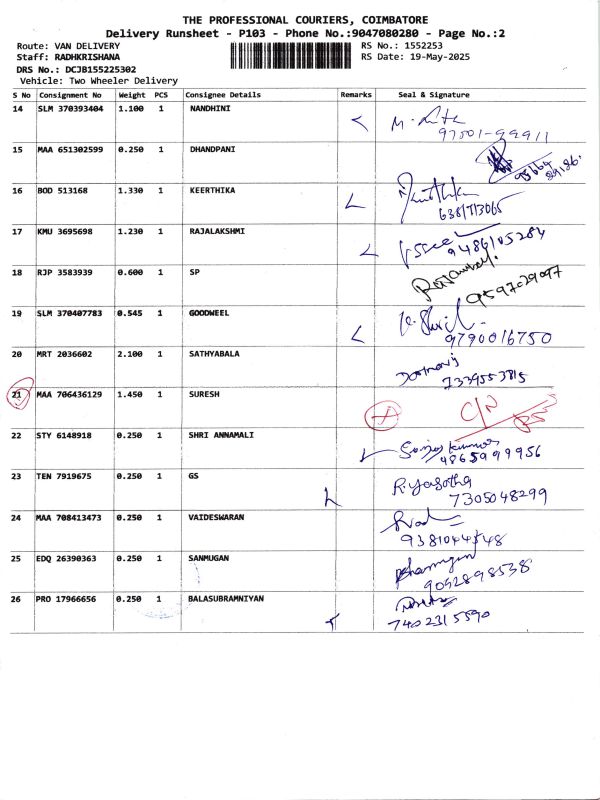 THE PROFESSIONAL COURIERS, COIMBATORE
Delivery Runsheet - P103 - Phone No.:9047080280 - Page No.:2
Route: VAN DELIVERY RS No.: 1552253
Staff: RADHKRISHANA RS Date: 19-May-2025
DRS No.: DCJB155225302
Vehicle: Two Wheeler Delivery
S No Consignment No Weight PCS Consignee Details Remarks Seal & Signature
14 SLM 370393404 1.100 1 NANDHINI
97501-99911
15 MAA 651302599 0.250 1 DHANDPANI
95664
89186
16 BOD 513168 1.330 1 KEERTHIKA
6381713065
17 KMU 3695698 1.230 1 RAJALAKSHMI
9486105284
18 RJP 3583939 0.600 1 SP
9597029097
19 SLM 370407783 0.545 1 GOODWEEL
9790016750
20 MRT 2036602 2.100 1 SATHYABALA
7339553815
21 MAA 706436129 1.450 1 SURESH C/N
22 STY 6148918 0.250 1 SHRI ANNAMALI
4865999956
23 TEN 7919675 0.250 1 GS R.Yasotha
7305048299
24 MAA 708413473 0.250 1 VAIDESWARAN
9381044548
25 EDQ 26390363 0.250 1 SANMUGAN
9092898538
26 PRO 17966656 0.250 1 BALASUBRAMNIYAN
7402315590